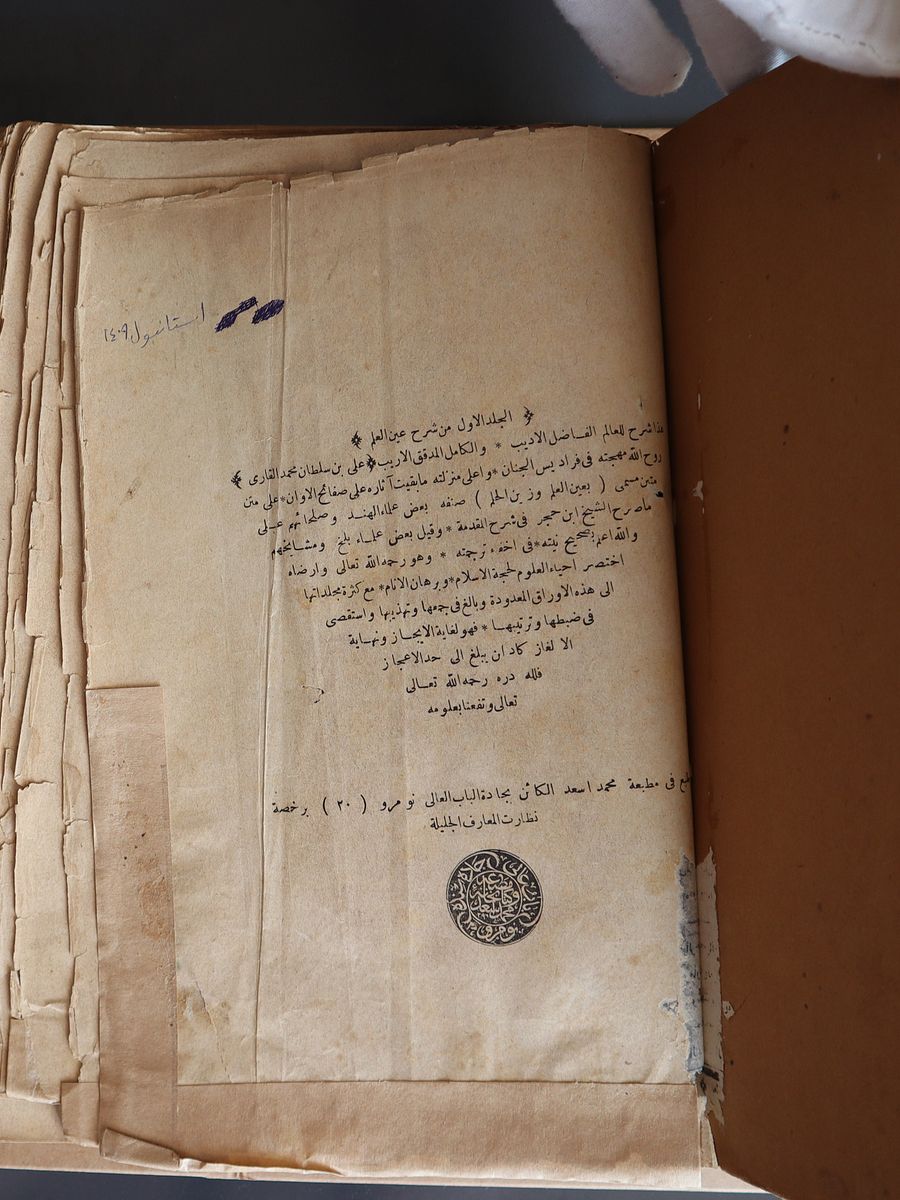 استانبول ١٤٠٩
﴿ الجلد الاول من شرح عين العلم ﴾
هذا شرح للعالم الفاضل الاديب * والكامل المدقق الاريب ﴿ على بن سلطان محمد القارى ﴾
روح الله مهجته فى فراديس الجنان * واعلى منزلته مابقيت آثاره على صفائح الاوان * على متن
متن مسمى ( بعين العلم وزين الحلم ) صنفه بعض علماء الهند وصلحائهم على
ماصرح الشيخ ابن حجر فى شرح المقدمة * وقيل بعض علماء بلخ ومشايخهم
والله اعلم بصحيح نيته * فى اخفاء ترجمته * وهو رحمه الله تعالى وارضاه
اختصر احياء العلوم لحجة الاسلام * وبرهان الانام * مع كثرة مجلداتها
الى هذه الاوراق المعدودة وبالغ فى جمعها وتهذيبها واستقصى
فى ضبطها وترتيبها * فهو لغاية الايجاز ونهاية
الالغاز كاد ان يبلغ الى حد الاعجاز
فلله دره رحمه الله تعالى
تعالى ونفعنا بعلومه
طبع فى مطبعة محمد اسعد الكائن بجادة الباب العالى نومرو ( ٢٠ ) برخصة
نظارت المعارف الجليلة